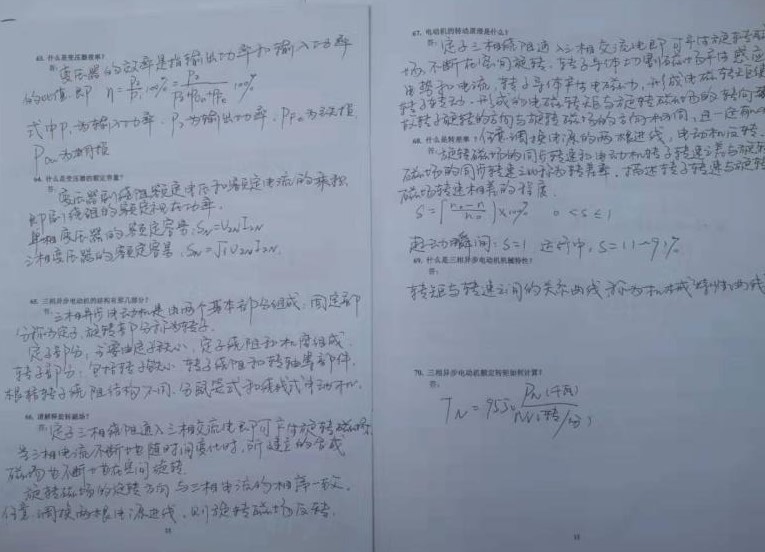 63. 什么是变压器效率?
答: 变压器的效率是指输出功率和输入功率
的比值.即 η=P₂/P₁×100%=P₂/(P₂+Pcu+PFe)×100%
式中P₁为输入功率.P₂为输出功率.PFe为铁损
Pcu为铜损
64. 什么是变压器的额定容量?
答: 变压器副绕组额定电压和额定电流的乘积.
即副绕组的额定视在功率.
单相变压器的额定容量:SN=U2NI2N
三相变压器的额定容量:SN=√3U2NI2N.
65. 三相异步电动机的结构有那几部分?
答: 三相异步电动机是由两个基本部分组成.固定部
分称为定子.旋转部分称为转子.
定子部分:主要由定子铁心.定子绕阻和机座组成.
转子部分:包括转子铁心.转子绕阻和转轴等部件.
根据转子绕阻结构不同.分鼠笼式和绕线式电动机.
66. 请解释旋转磁场?
答: 定子三相绕阻通入三相交流电即可产生旋转磁场.
当三相电流不断地随时间变化时.所建立的合成
磁场也不断地在空间旋转.
旋转磁场的旋转方向与三相电流的相序一致.
任意调换两根电源进线.则旋转磁场反转.
11
67. 电动机的转动原理是什么?
答: 定子三相绕阻通入三相交流电即可产生旋转磁
场.不断在空间旋转.转子导体切割磁场产生感应
电势和电流.转子导体产生电磁力.形成电磁转矩使
转子转动.形成的电磁转矩与旋转磁场的转向
故转子旋转的方向与旋转磁场的方向相同.
任意调换电源的两根进线.电动机反转.
68. 什么是转差率?
答: 旋转磁场的同步转速和电动机转子转速之差与旋转
磁场的同步转速之比称为转差率.描述转子转速与旋转
磁场转速相差的程度.
S=[(n₀-n)/n₀]×100% 0<S≤1
起动瞬间:S=1 运行中.S=(1~9)%
69. 什么是三相异步电动机机械特性?
答:
转矩与转速之间的关系曲线称为机械特性曲线
70. 三相异步电动机额定转矩如何计算?
答:
TN=9550 PN(千瓦)/nN(转/分)